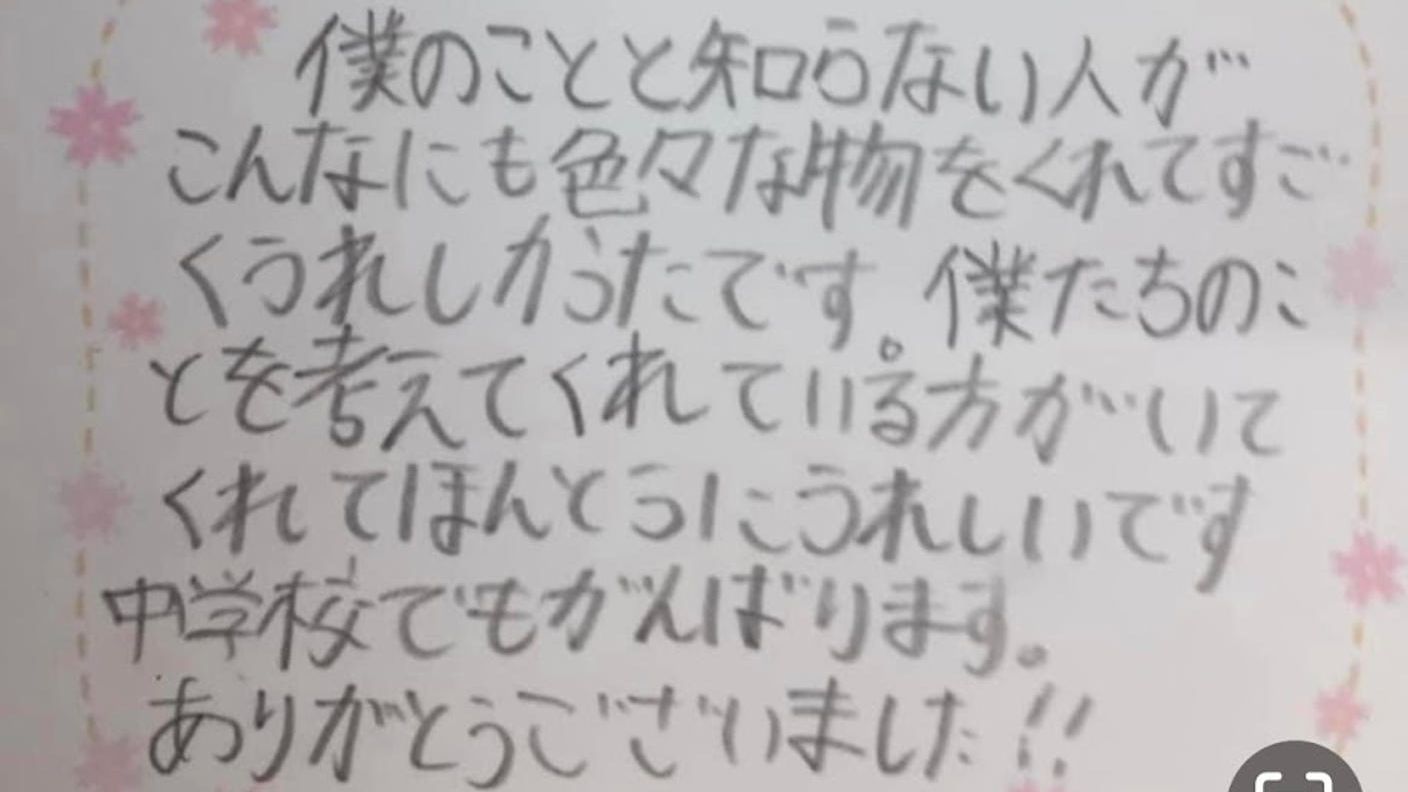 僕のことと知らない人が
こんなにも色々な物をくれてすご
くうれしかうたです。僕たちのこ
とを考えてくれている方がいて
くれてほんとうにうれしいです
中学校でもがんばります。
ありがとうございました!!